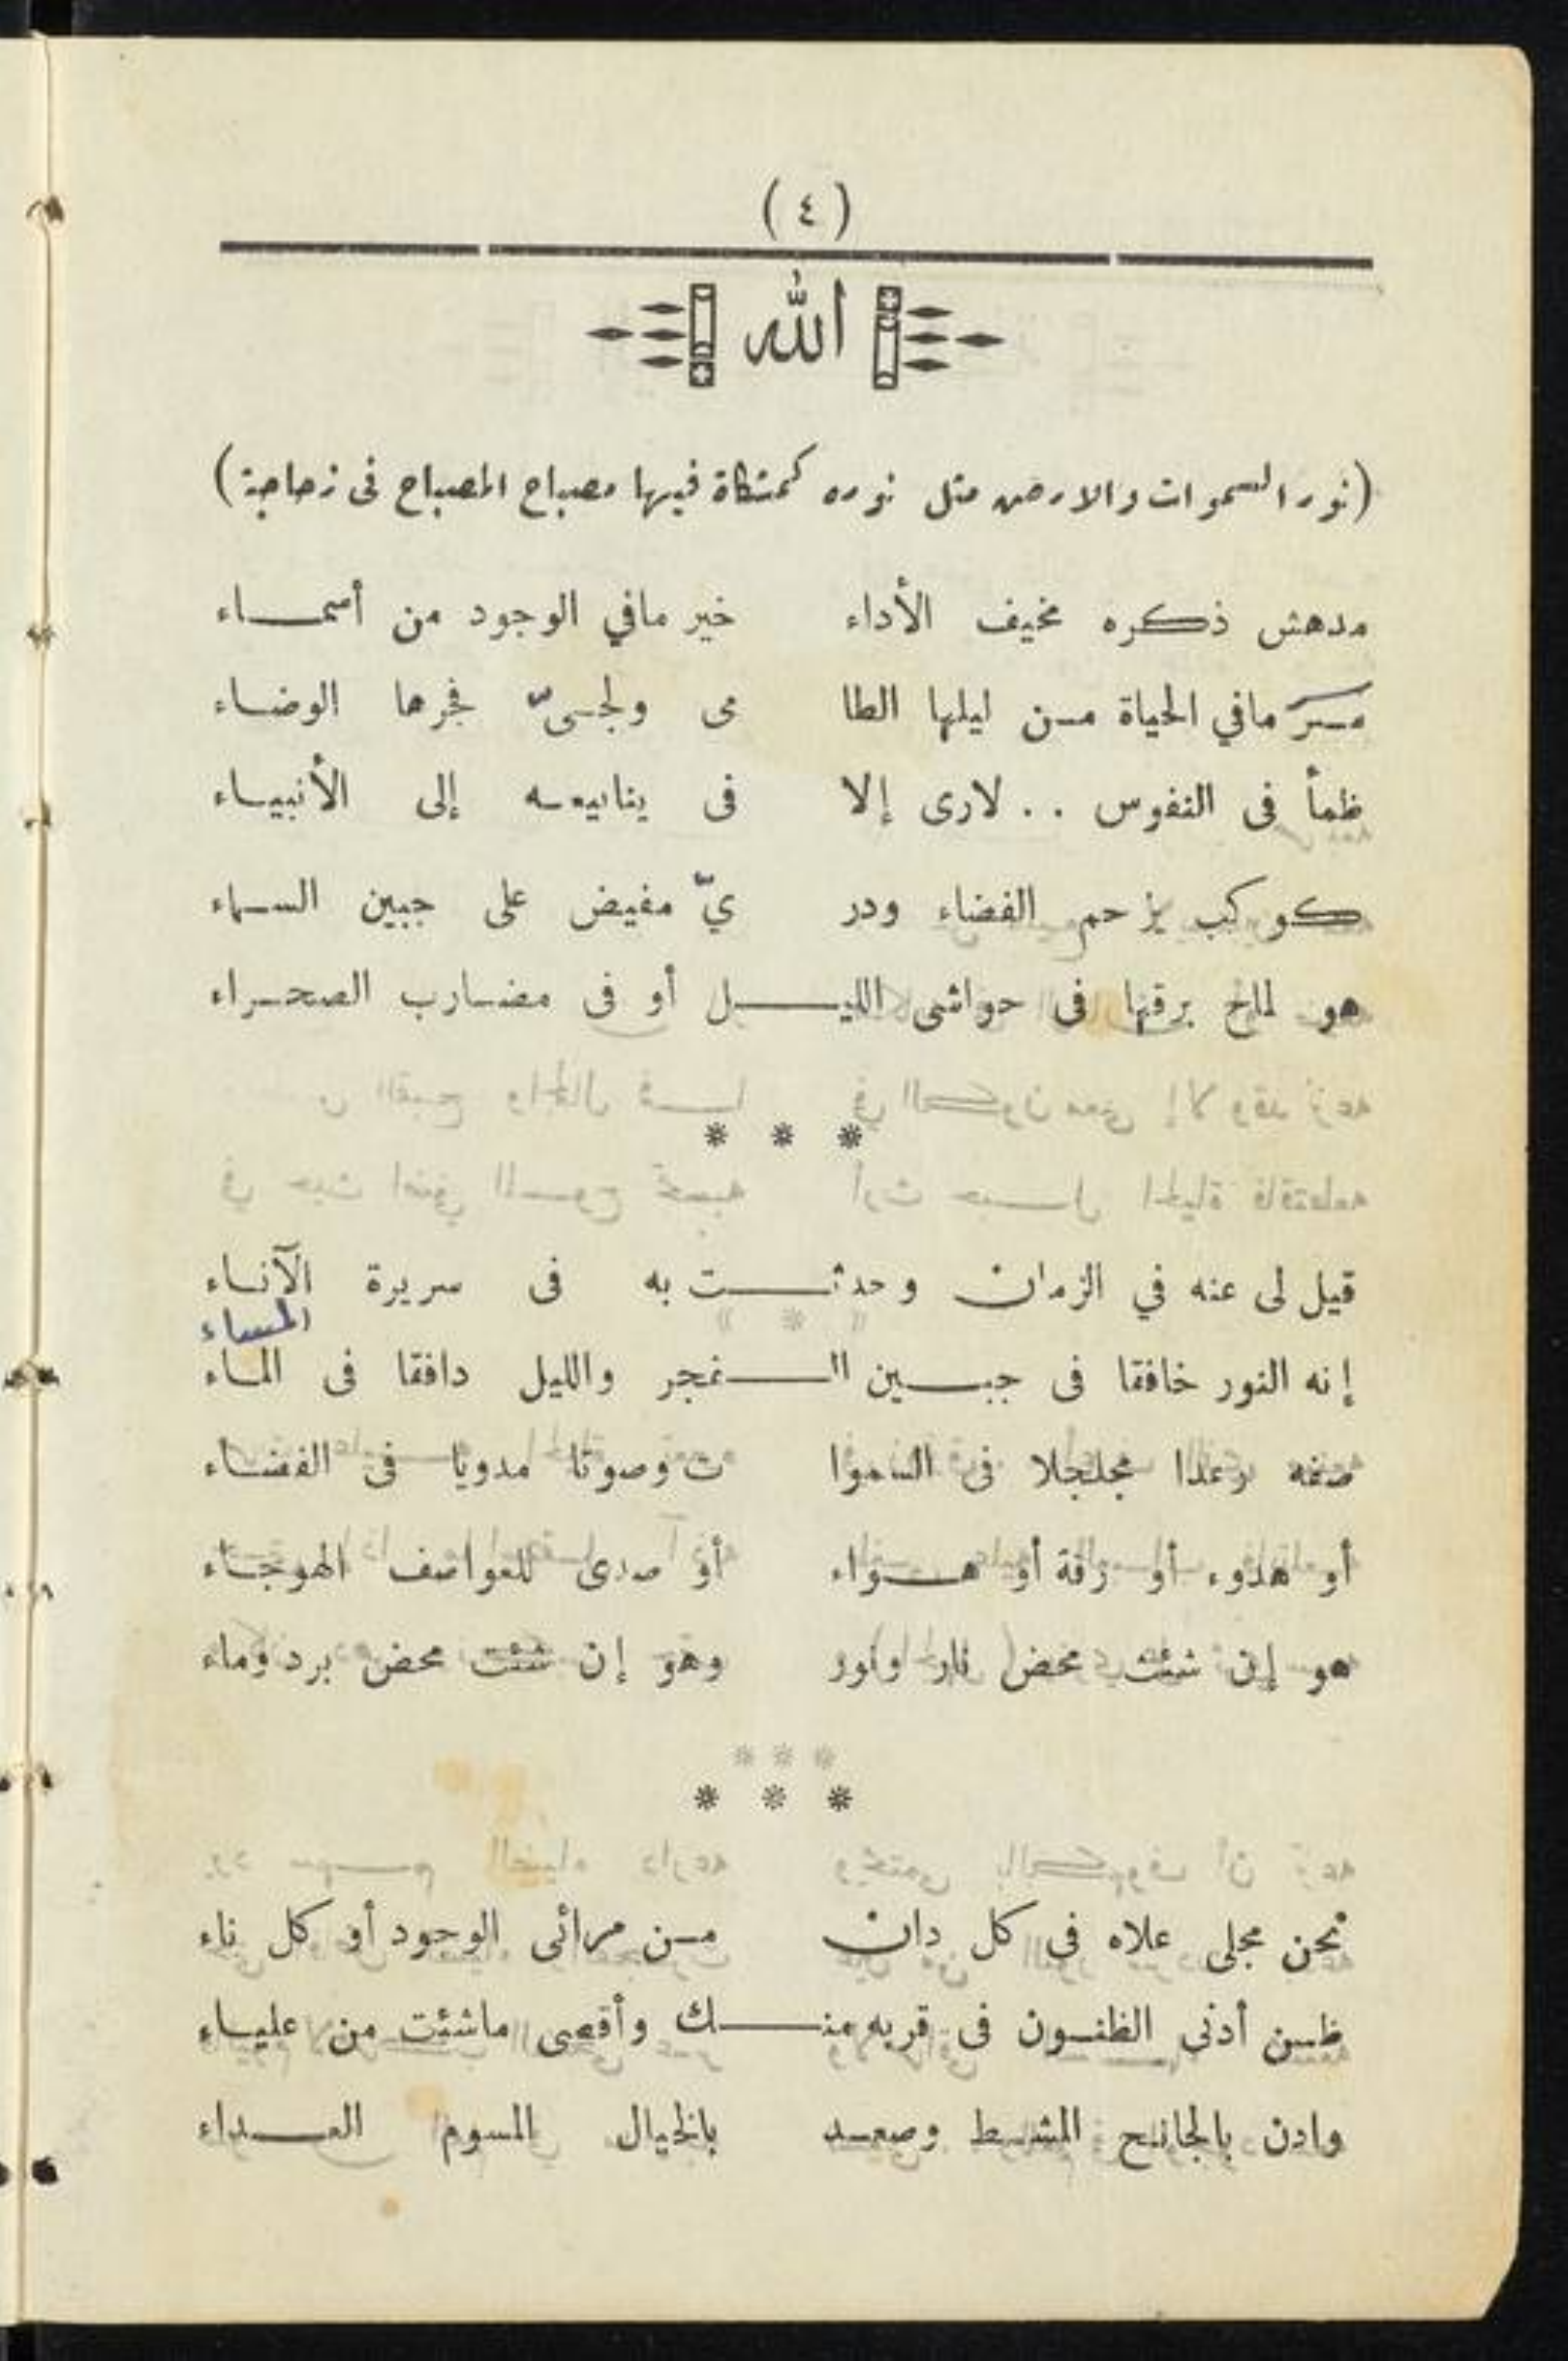 ( ٤ )
الله
(نور السموات والارض مثل نوره كمشكاة فيها مصباح المصباح فى زجاجة)
مدهش ذكره مخيف الأداء خير مافي الوجود من أسماء
مسر مافي الحياة من ليلها الطا مى ولجىّ فجرها الوضاء
ظمأ فى النفوس .. لارى إلا فى ينابيعه إلى الأنبياء
كوكب يزحم الفضاء ودر يّ مفيض على جبين السماء
هو لماح برقها فى حواشى الليل أو فى مضارب الصحراء
* * *
قيل لى عنه في الزمان وحدثت به فى سريرة الآناء
المساء
إنه النور خافقا فى جبين الفجر والليل دافقا فى الماء
صفه رعدا مجلجلا فى السموا ت وصوتا مدويا فى الفضاء
أو هدوء أو رقة أو هواء أو صدى للعواصف الهوجاء
هو إن شئت محض نار ونور وهو إن شئت محض برد وماء
* * *
نحن مجلى علاه فى كل دان من مرائى الوجود أو كل ناء
ظن أدنى الظنون فى قربه منك وأقصى ماشئت من علياء
وادن بالجانح المشط وصعد بالخيال المسوم العداء